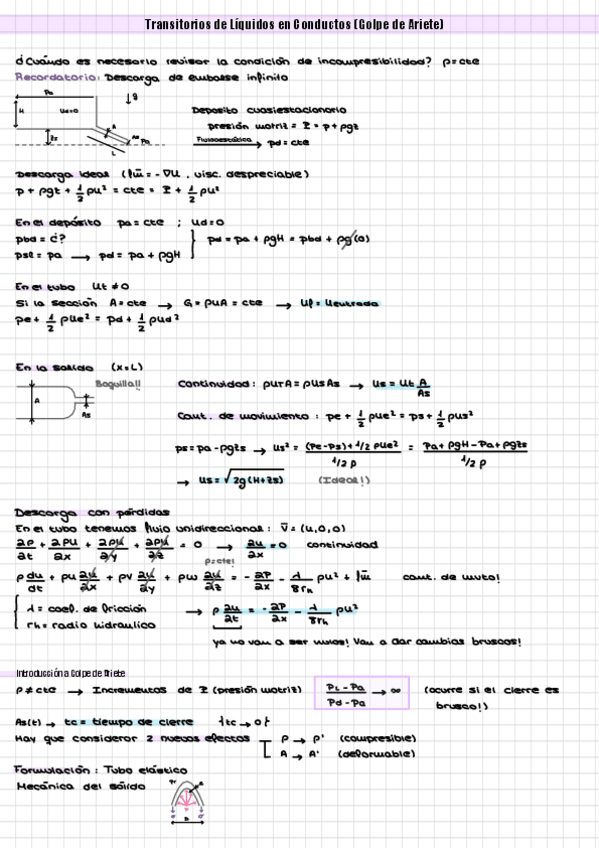 Transitorios de Líquidos en Conductos (Golpe de Ariete)
¿Cuándo es necesario revisar la condición de incompresibilidad? ρ=cte
Recordatorio: Descarga de embalse infinito
Pa
H
Ud=0
↓g
Zs
A
As
Pa
L
Deposito cuasiestacionario
presión motriz = P = p+ρgz
Fluidoestática → pd = cte
Descarga ideal ( fm = -∇U , visc. despreciable)
p + ρgz + 1/2 ρu² = cte = P + 1/2 ρu²
En el depósito pa = cte ; Ud=0
pbd = ¿?
psl = pa → pd = pa + ρgH } pd = pa + ρgH = pbd + ρg(0)
En el tubo Ut ≠ 0
Si la sección A = cte → G = ρuA = cte → Uf = Uentrada
pe + 1/2 ρue² = pd + 1/2 ρud²
En la salida (x=L)
Boquilla!!
A
As
Continuidad: ρutA = ρusAs → us = ut A/As
Cant. de movimiento : pe + 1/2 ρue² = ps + 1/2 ρus²
ps = pa - ρgzs → us² = (pe-ps)+1/2 ρue² / 1/2 ρ = Pa + ρgH - Pa + ρgzs / 1/2 ρ
→ us = √2g(H+zs) (Ideal!)
Descarga con pérdidas
En el tubo tenemos flujo unidireccional : v̄ = (u,0,0)
∂ρ/∂t + ∂ρu/∂x + ∂ρv/∂y + ∂ρw/∂z = 0 → ∂u/∂x = 0 continuidad
ρ=cte!
ρ du/dt + ρu ∂u/∂x + ρv ∂u/∂y + ρw ∂u/∂z = - ∂P/∂x - λ/8rh ρu² + fm cant. de mvto!
λ = coef. de fricción → ρ ∂u/∂t = - ∂P/∂x - λ/8rh ρu²
rh = radio hidraulico
ya no van a ser nulos! Van a dar cambios bruscos!
Introducción a Golpe de Ariete
ρ ≠ cte → Incrementos de P (presión motriz) PL - Pa / Pd - Pa → ∞ (ocurre si el cierre es
brusco!)
As(t) → tc = tiempo de cierre {tc → 0}
Hay que considerar 2 nuevos efectos ρ → ρ' (compresible)
A → A' (deformable)
Formulación : Tubo elástico
Mecánica del sólido
D